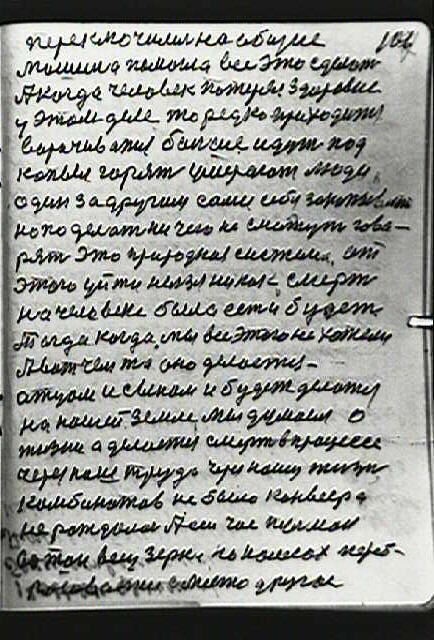 переключили на общие 104
машина помогла все это сделат
А когда человек потерял здоровие
у этом деле то редко приходится
ворачиватся больше идут под
копыл горят умирают люди,
один за другим сами себя
но поделат ни чего не смогут гова-
рят это природная система от
этого уйти нельзя никак смерт
на человеке была ест и будет
Тогда когда, мы все этого не хотели
А вот чем та оно делается-
отцом и сыном и будет делатся
на нашей земле мы думаем о
жизни а делается смерт в процессе
через наше труда через нашу жизнь
комбинатов не было конвеера
не рождался А сейчас прямая
во тои весу зерна на полосах
вместо другое